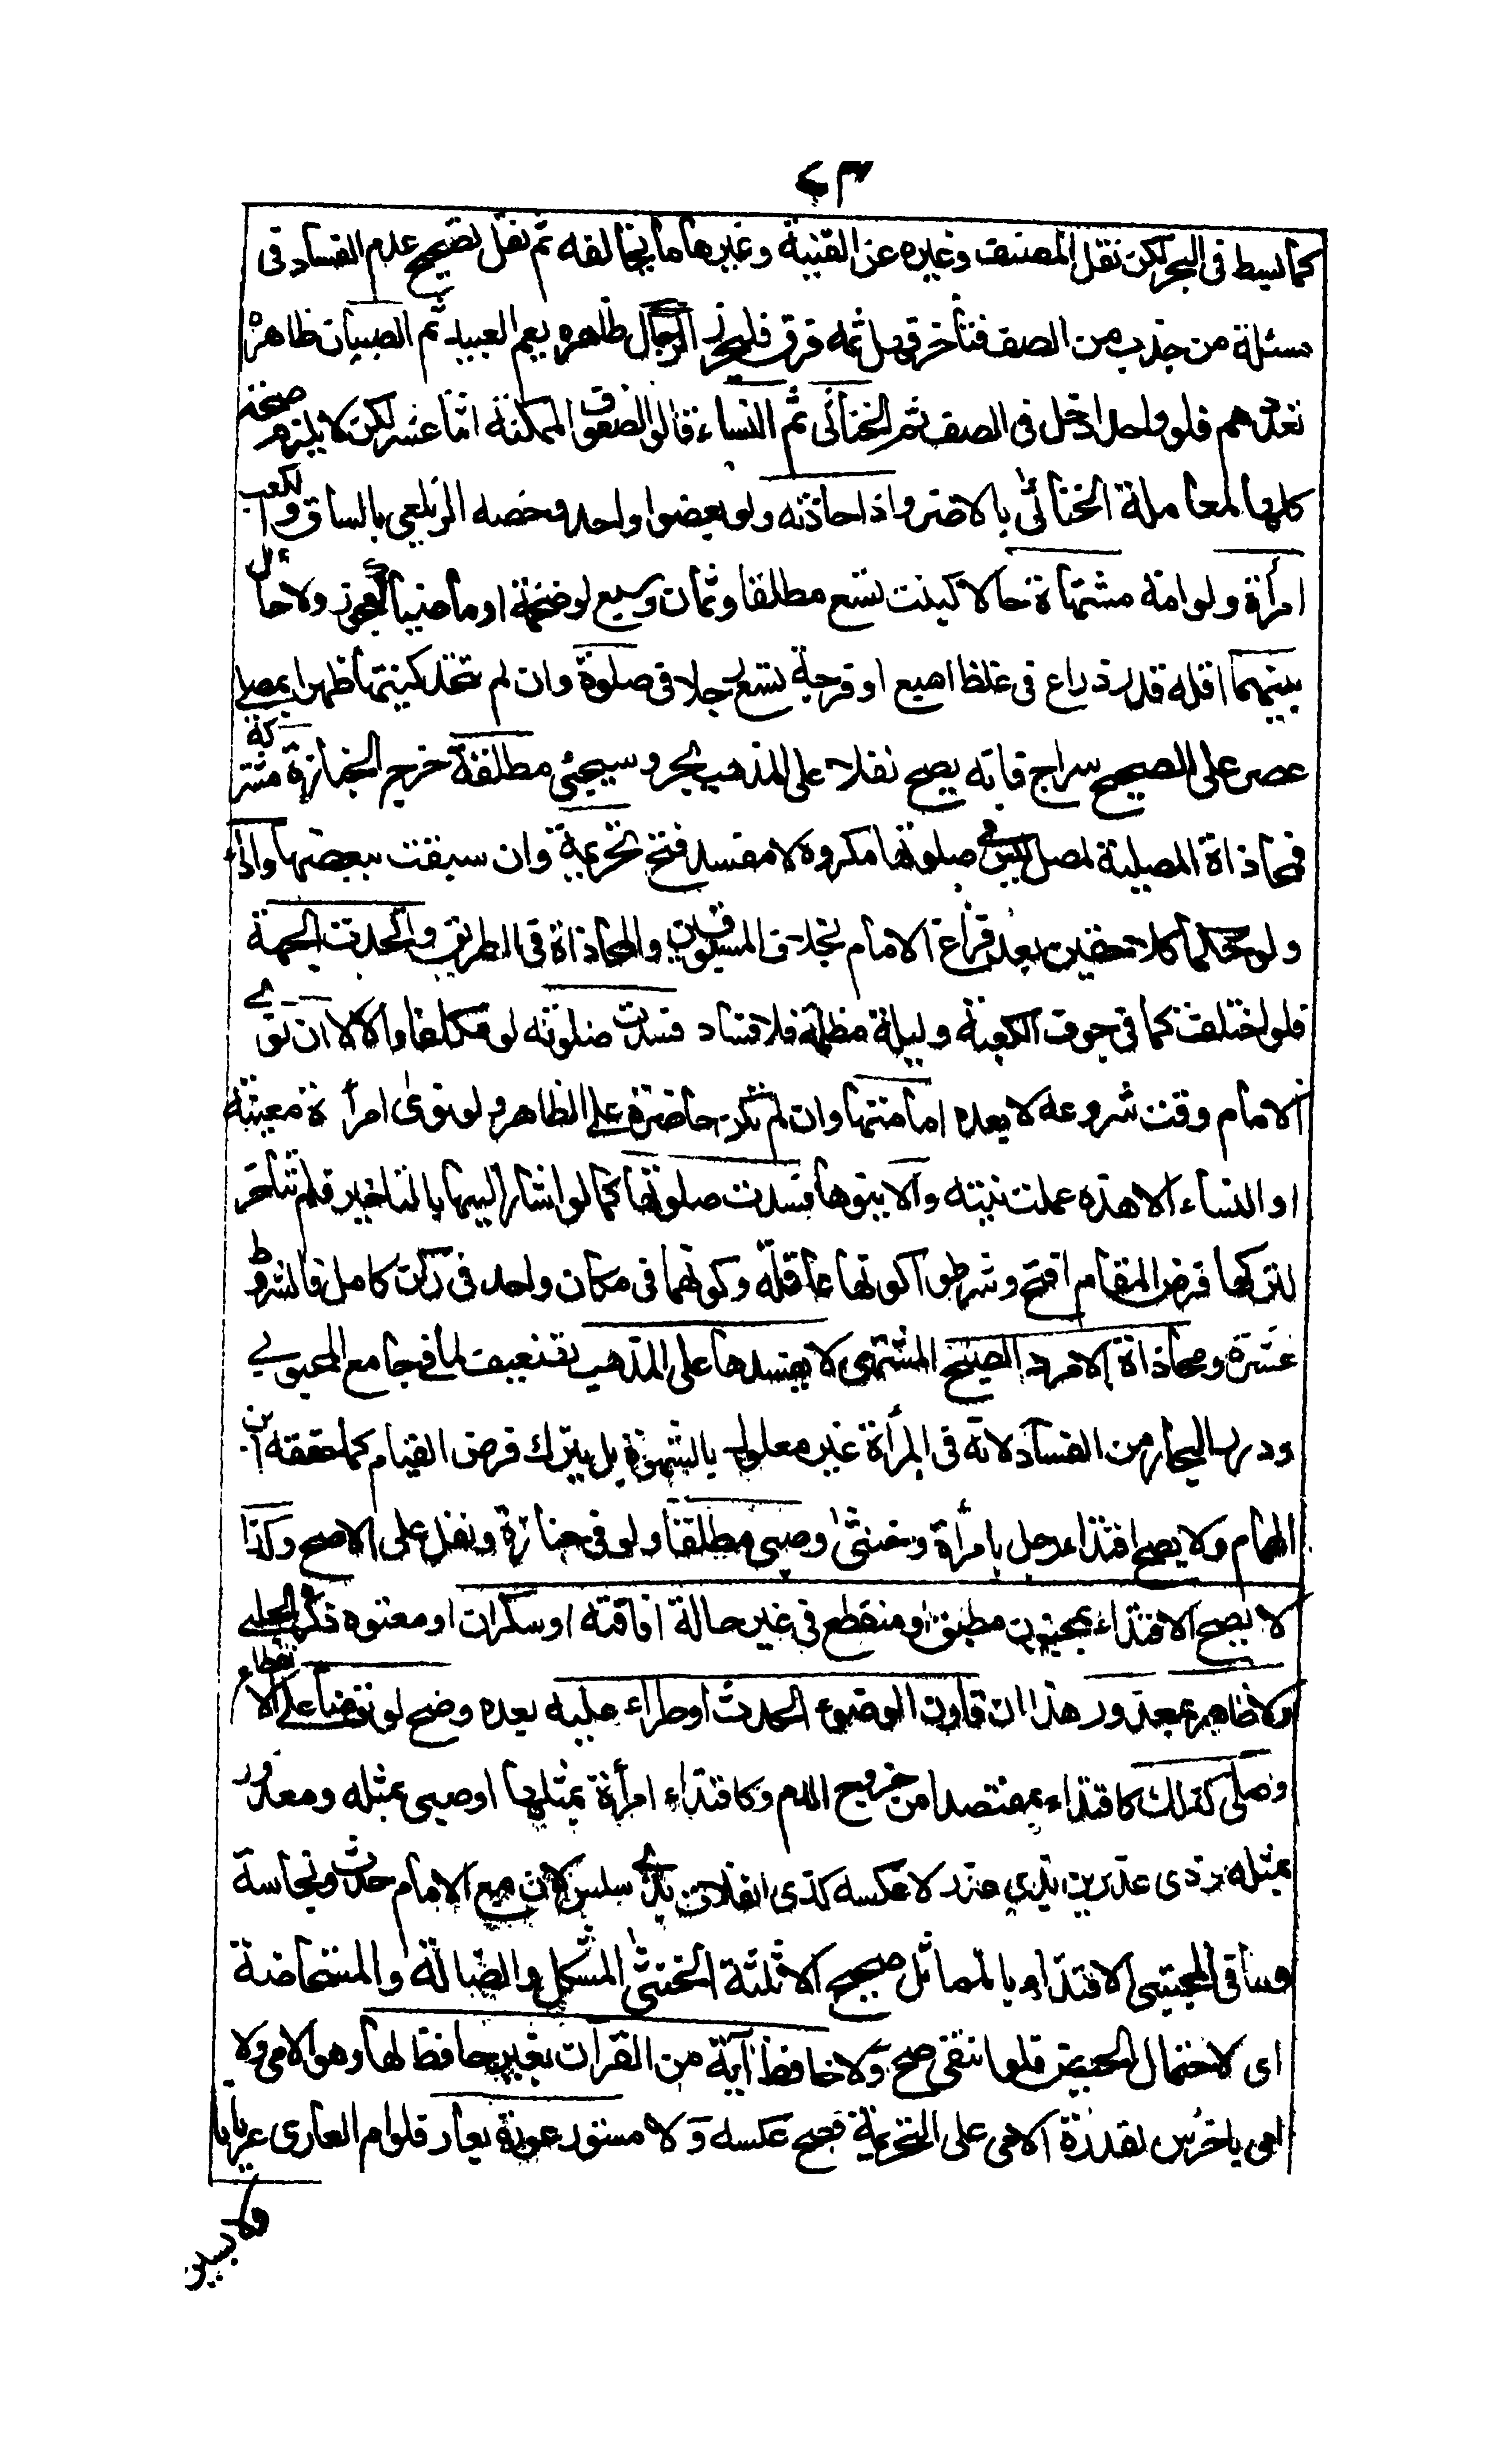 ٧٣
كما بسط فى البحر لكن نقل المصنف وغيره عن القنية وغيرها ما يخالفه ثم نقل تصحيح عدم الفساد فى
مسئلة من جذب من الصف فتأخر فهل ثمه فرق فليحرر الرجال ظاهره يعم العبيد ثم الصبيان ظاهره
تعددهم فلو واحدا دخل فى الصف ثم الخناثى ثم النساء قالوا الصفوف الممكنة اثنا عشر لكن لا يلزم صحة
كلها لمعاملة الخناثى بالاضر واذا حاذته ولو بعضو واحد وخصه الزيلعى بالساق والكعب
امرأة ولو امة مشتهاة حالا كبنت تسع مطلقا وثمان وسبع لو ضخمة او ماضيا كعجوز ولا حائل
بينهما اقله قدر ذراع فى غلظ اصبع او فرجة تسع رجلا فى صلوة وان لم تتحد كنيتها ظهرا بمصلى
عصر على الصحيح سراج فانه يصح نفلا على المذهب بحر وسيجئى مطلقة خرج الجنازة مشتركة
فمحاذاة المصلية لمصل ليس فى صلوتها مكروه لا مفسد فتح تحريمة وان سبقت ببعضها واداء
ولو حكما كلاحقين بعد فراغ الامام بخلاف المسبوقين والمحاذاة فى الطريق واتحدت الجهة
فلو اختلفت كما فى جوف الكعبة وليلة مظلمة فلا فساد فسدت صلوته لو مكلفا والا لا ان نوى
الامام وقت شروعه لا بعده امامتها وان لم تكن حاضرة على الظاهر ولو نوى امرأة معينة
او النساء الا هذه عملت نيته والا ينوها فسدت صلوتها كما لو اشار اليها بالتاخير فلم تتأخر
لتركها فرض المقام فتح وشرطوا كونها عاقلة وكونهما فى مكان واحد فى ركن كامل فالشروط
عشرة ومحاذاة الامرد الصبيح المشتهى لا يفسدها على المذهب تضعيف لما فى جامع المحبوبى
ودرر البحار من الفساد لانه فى المرأة غير معلول بالشهوة بل بترك فرض القيام كما حققه ابن
الهمام ولا يصح اقتداء رجل بامرأة وخنثى وصبى مطلقا ولو فى جنازة ونفل على الاصح وكذا
لا يصح الاقتداء بمجنون مطبق او منقطع فى غير حالة افاقته او سكران او معتوه ذكره الحلبى
ولا طاهر بمعذور هذا ان قارن الوضوء الحدث او طراء عليه بعده وصح لو توضأ على الانقطاع
وصلى كذلك كاقتداء بمفتصد امن خروج الدم وكاقتداء امرأة بمثلها او صبى بمثله ومعذور
بمثله وذى عذرين بذى عذر لا عكسه كذى انفلات بذى سلس لان مع الامام حدث ونجاسة
وما فى المجتبى الاقتداء بالمماثل صحيح الا ثلثة الخنثى المشكل والضالة والمستحاضة
اى لاحتمال الحيض فلو انتفى صح ولا حافظ آية من القرآن بغير حافظ لها وهو الامى ولا
امى باخرس لقدرة الامى على التحريمة فصح عكسه ولا مستور عورة بعار فلو ام العارى عريانا
ولابسين